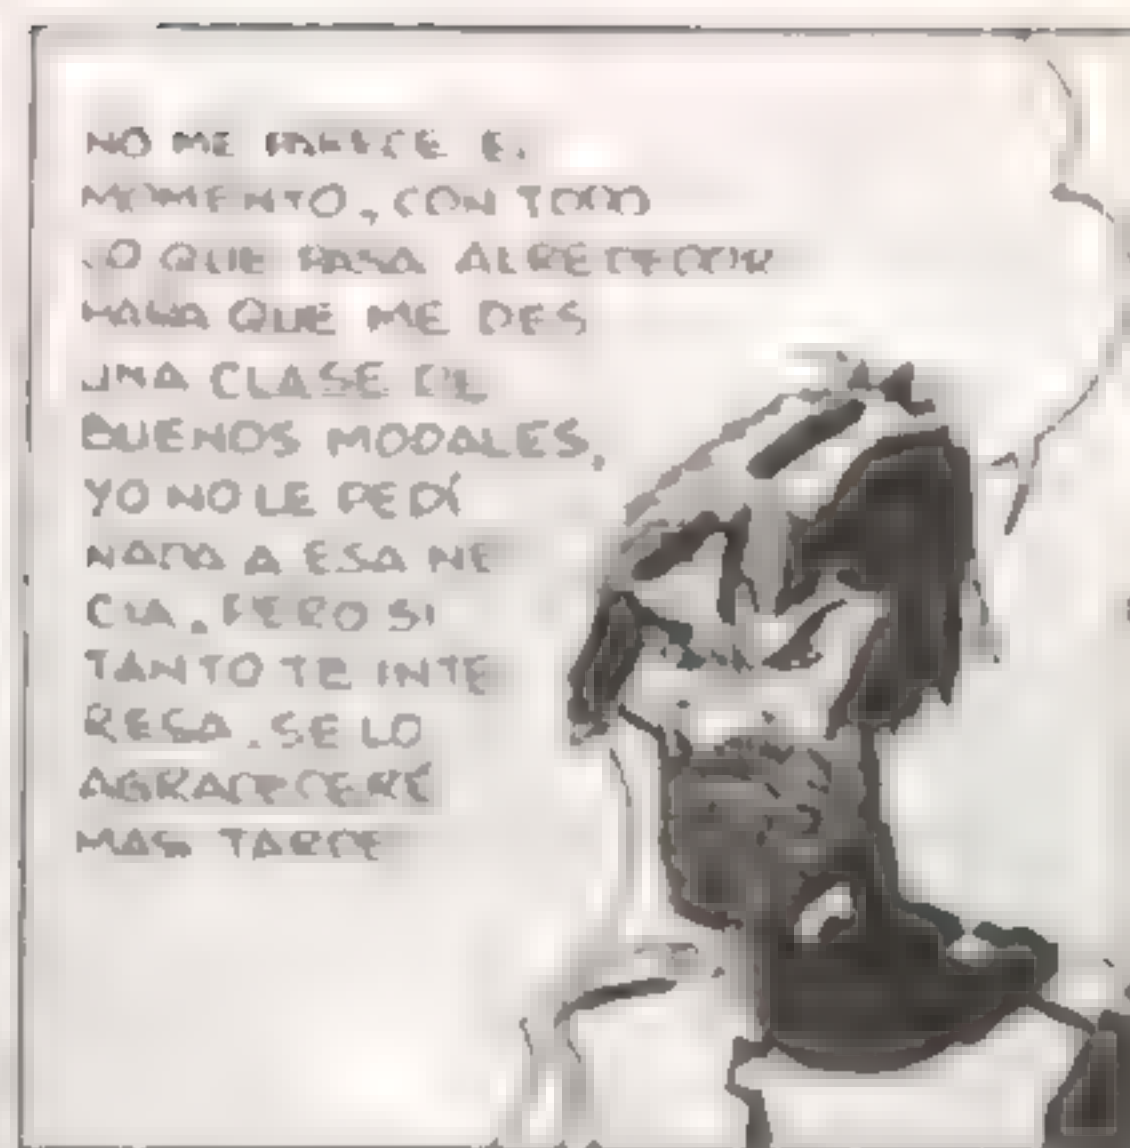 NO ME PARECE EL
MOMENTO, CON TODO
LO QUE PASA ALREDEDOR
PARA QUE ME DES
UNA CLASE DE
BUENOS MODALES,
YO NO LE PEDÍ
NADA A ESA NE
CIA. PERO SI
TANTO TE INTE
RESA. SE LO
AGRADECERÉ
MAS TARDE